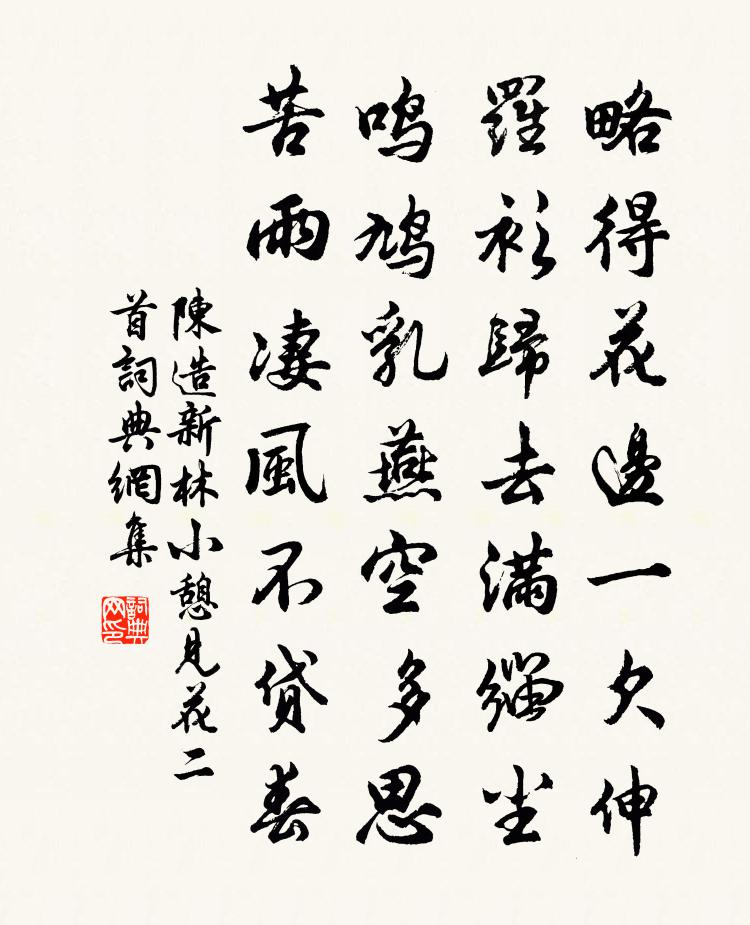 略得花邊一欠伸
羅衫歸去滿繮塵
鳴鳩乳燕空多思
苦雨凄風不貸春
陳造新林小憩見花二
首詞典網集
詞典
网印